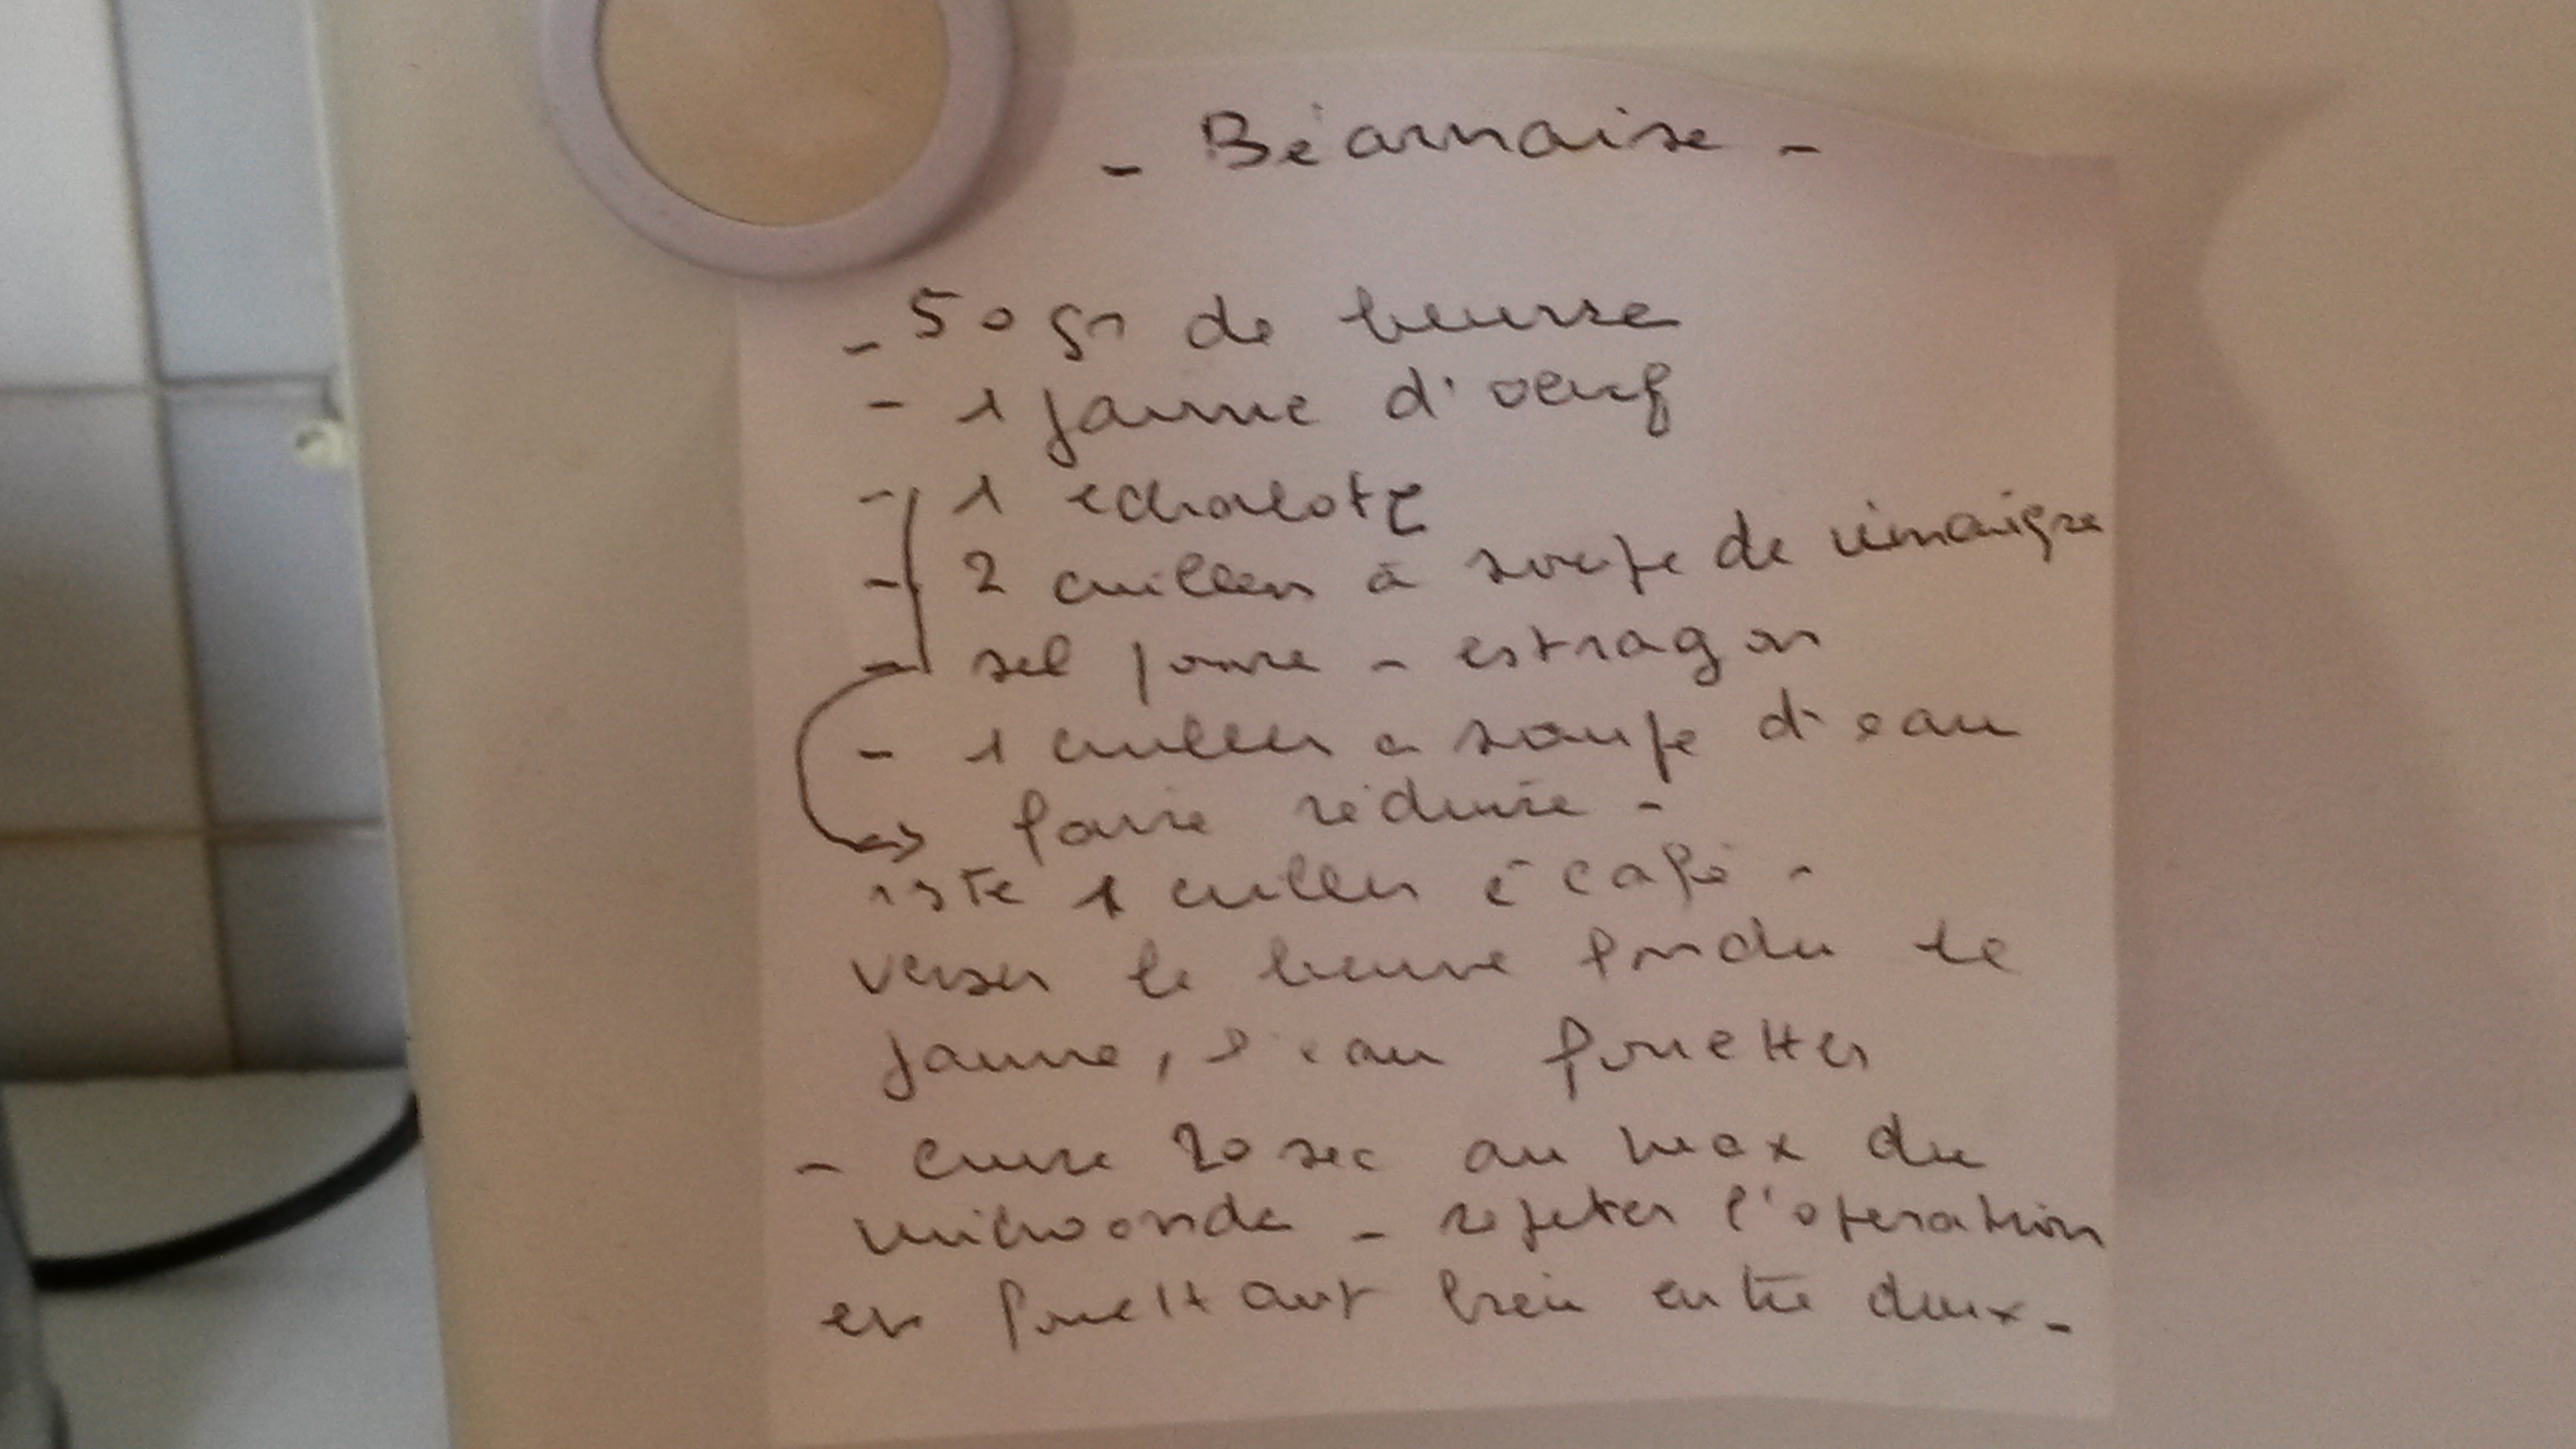 - Béarnaise -
- 50 gr de beurre
- 1 jaune d'oeuf
- 1 echalote
- 2 cuillers à soupe de vinaigre
- sel poivre - estragon
- 1 cuiller a soupe d'eau
→ faire réduire -
reste 1 cuiller à café -
verser le beurre fondu le
jaune, l'eau fouetter
- cuire 20 sec au max du
microonde - repeter l'operation
en fouettant bien entre deux -